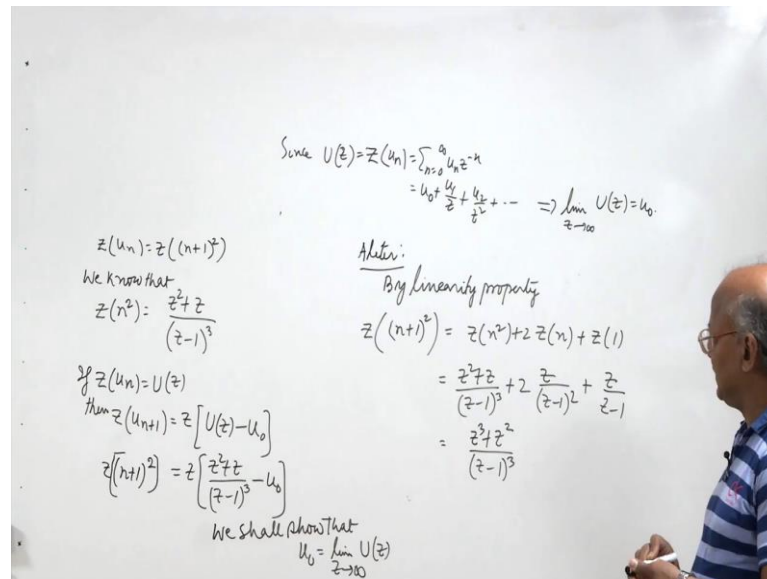 Since U(z) = Z(u_n) = ∑_{n=0}^{∞} u_n z^{-n}
= u_0 + u_1/z + u_2/z^2 + ··· ⇒ lim_{z→∞} U(z) = u_0.
z(u_n) = z((n+1)^2)
We know that
z(n^2) = (z^2+z)/(z-1)^3
If z(u_n) = U(z)
then z(u_{n+1}) = z[U(z) - u_0]
z((n+1)^2) = z[(z^2+z)/(z-1)^3 - u_0]
We shall show that
u_0 = lim_{z→∞} U(z)
Aliter:
By linearity property
z((n+1)^2) = z(n^2) + 2 z(n) + z(1)
= (z^2+z)/(z-1)^3 + 2 z/(z-1)^2 + z/(z-1)
= (z^3+z^2)/(z-1)^3